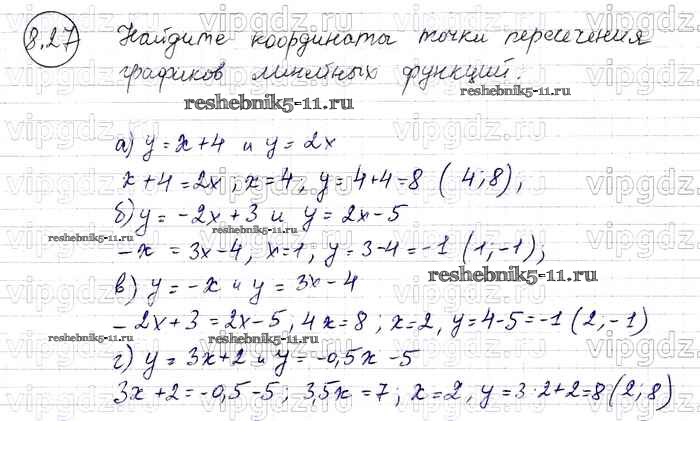 8.27 Найдите координаты точки пересечения
графиков линейных функций.
reshebnik5-11.ru
reshebnik5-11.ru
а) y = x+4 и y = 2x
x+4 = 2x ; x=4, y = 4+4 = 8 ( 4; 8),
б) y = -2x+3 и y = 2x-5
reshebnik5-11.ru
-x = 3x-4, x=1, y = 3-4 = -1 (1, -1),
reshebnik5-11.ru
в) y = -x и y = 3x-4
-2x+3 = 2x-5, 4x=8 ; x=2, y=4-5=-1 (2, -1)
reshebnik5-11.ru
reshebnik5-11.ru
г) y = 3x+2 и y = -0,5x -5
3x+2 = -0,5-5 ; 3,5x = 7 ; x=2, y = 3·2+2=8 (2; 8)
vipgdz.ru